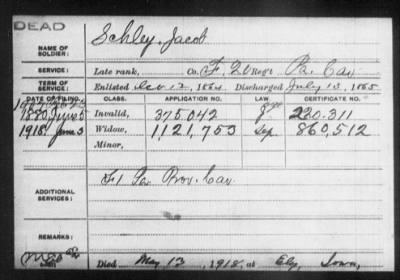 DEAD
NAME OF SOLDIER: Schley, Jacob
SERVICE: Late rank, Co. F, 20 Reg't Pa. Cav
TERM OF SERVICE: Enlisted 12, 1864 Discharged July 13, 1865
DATE OF FILING. CLASS. APPLICATION NO. LAW CERTIFICATE NO.
1880 June 5 Invalid, 375,042 220.311
1918. June 3 Widow, 1121,753 Sep. 860,512
Minor,
ADDITIONAL SERVICES: F1 Pa Prov. Cav
REMARKS:
Died May 13, 1918, at Ely, Iowa,